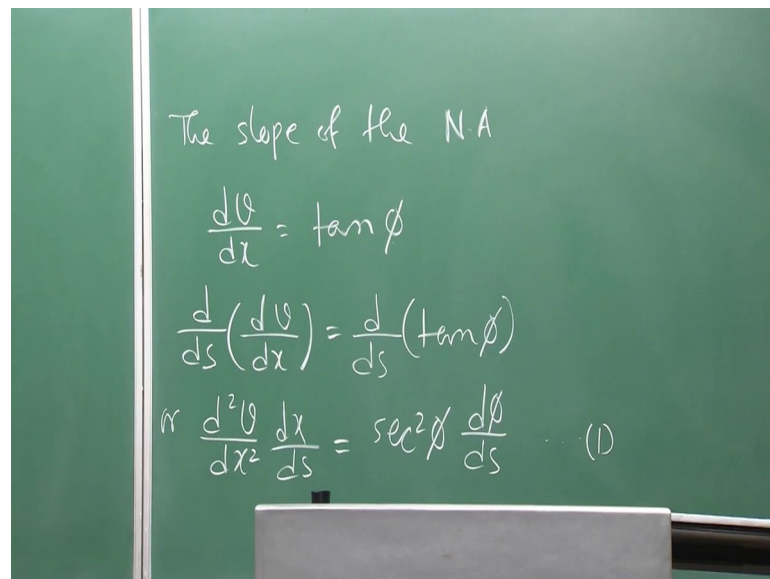 The slope of the N.A
dv/dx = tan φ
d/ds (dv/dx) = d/ds (tan φ)
or d²v/dx² dx/ds = sec²φ dφ/ds ... (1)